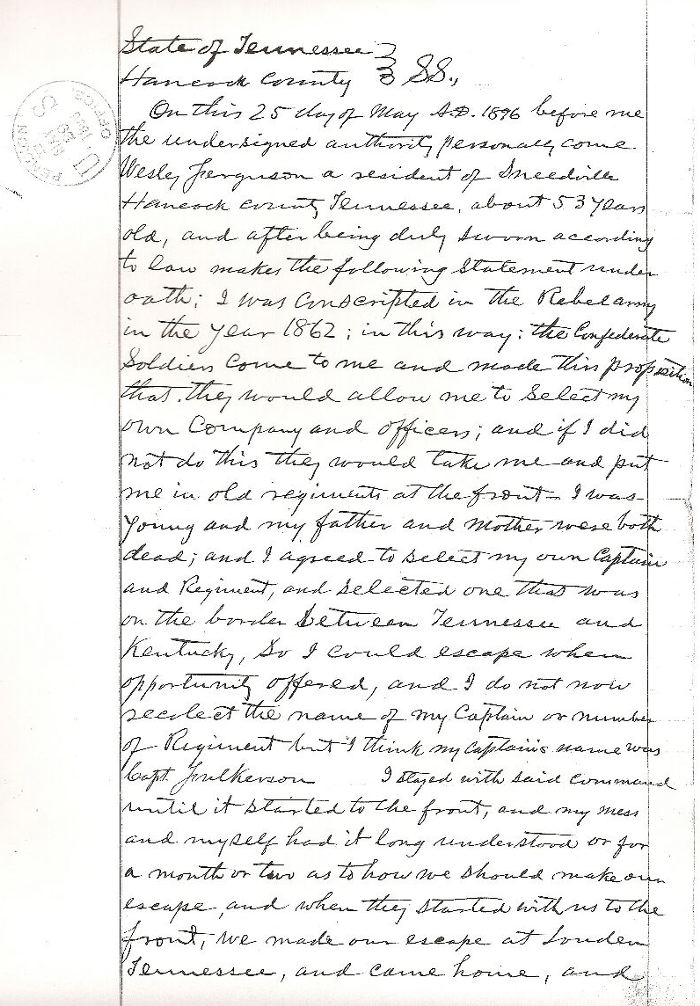 State of Tennessee }
Hancock County } SS.,
On this 25 day of May A.D. 1896 before me
the undersigned authority personaly come
Wesly Ferguson a resident of Sneedville
Hancock County Tennessee, about 53 years
old, and after being duly sworn according
to law makes the following Statement under
oath; I was Conscripted in the Rebel army
in the year 1862; in this way: the Confederate
Soldiers Come to me and made this proposition
that they would allow me to Select my
own Company and officers; and if I did
not do this they would take me and put
me in old regiments at the front – I was
young and my father and Mother were both
dead; and I agreed to select my own Captain
and Regiment, and selected one that was
on the border between Tennessee and
Kentucky, So I could escape when
opportunity offered, and I do not now
recolect the name of my Captain or number
of Regiment but I think my Captain's name was
Capt. Fulkerson I stayed with said command
until it started to the front, and my mess
and myself had it long understood or for
a month or two as to how we should make our
escape, and when they started with us to the
front, we made our escape at Louden
Tennessee, and came home, and
PENSION OFFICE
U.S.